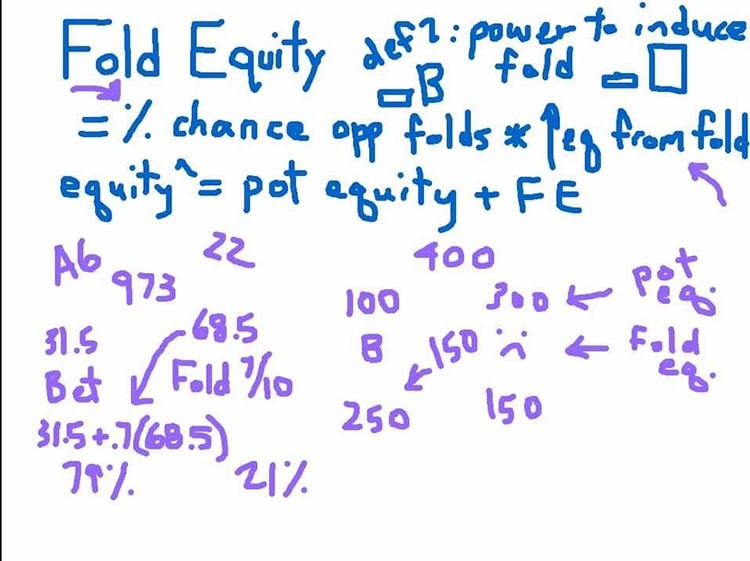 Fold Equity def 1: power to induce
fold
B
= % chance opp folds * ↑eq from fold
equity^ = pot equity + FE
A6 22
973
31.5 68.5
Bet Fold 7/10
31.5+.7(68.5)
79% 21%
400
100 300 ← pot eq.
B 150 ← fold eq.
250 150